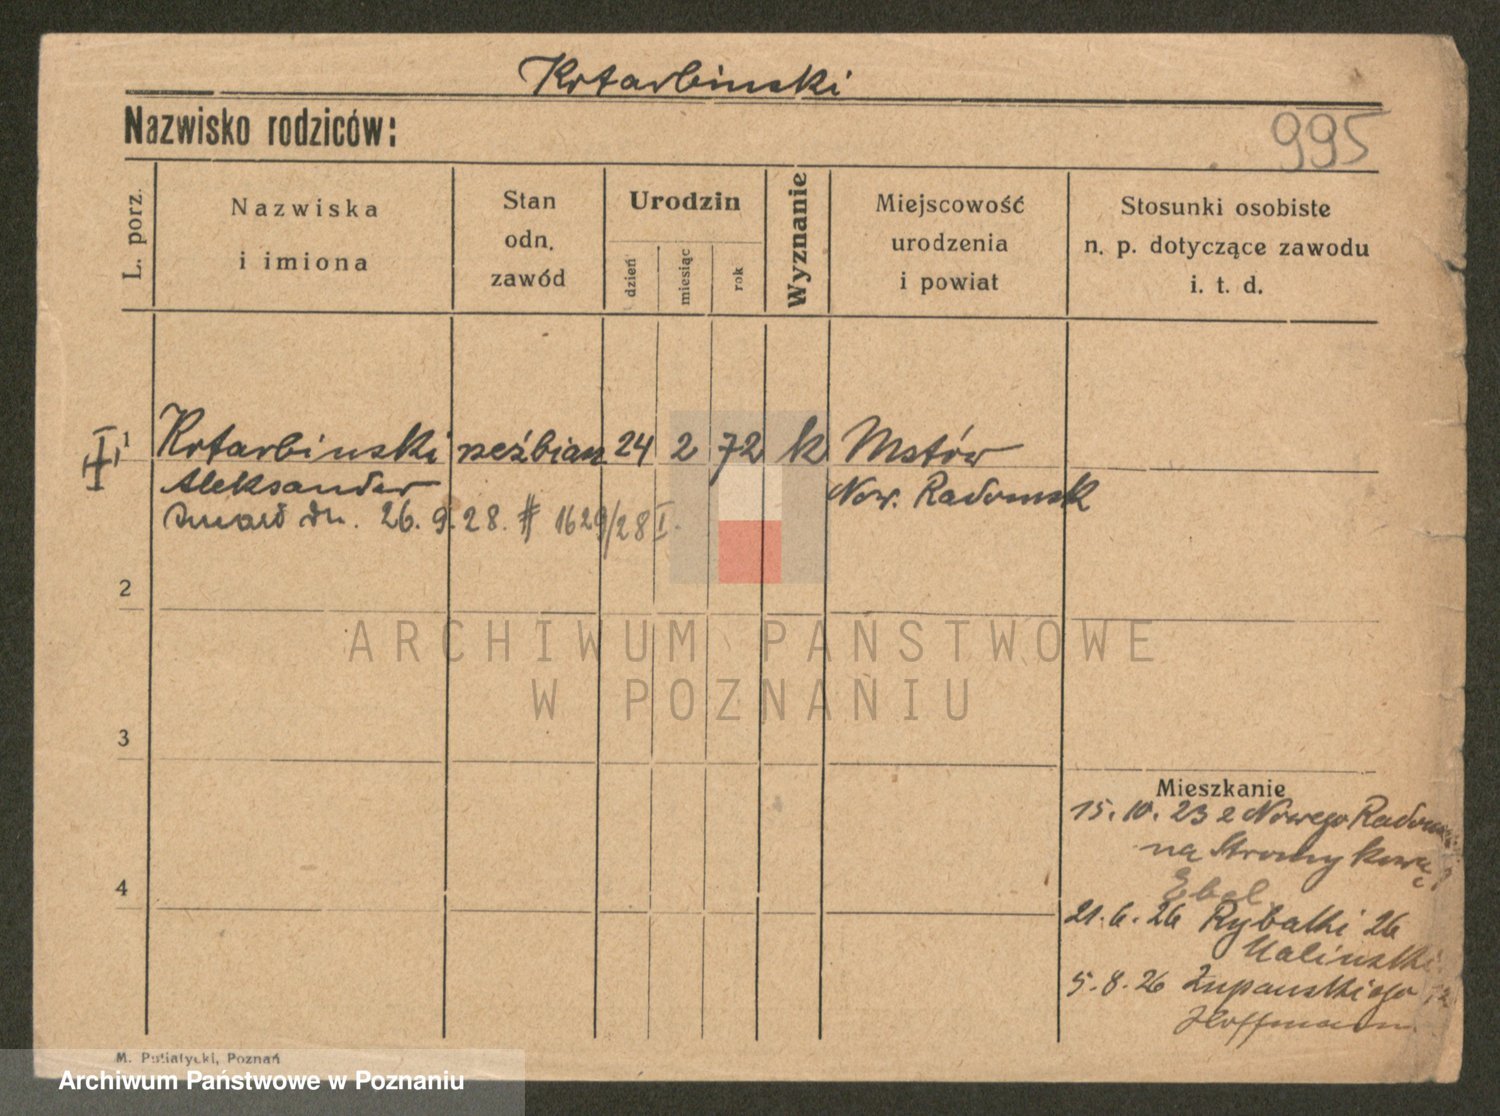 Kotarbinski
Nazwisko rodziców:
995
L. porz.
Nazwiska
i imiona
Stan
odn.
zawód
Urodzin
dzień
miesiąc
rok
Wyznanie
Miejscowość
urodzenia
i powiat
Stosunki osobiste
n. p. dotyczące zawodu
i. t. d.
1 Kotarbinski rzeźbiarz 24 2 72 k Mstów
Aleksander Now. Radomsk
zmarł dn. 26.9.28. # 1629/28 I.
2
ARCHIWUM PAŃSTWOWE
W POZNANIU
3
Mieszkanie
15.10.23 z Nowego
na
4
Ebel
21.6.26 Rybaki 26
5.8.26 Żupańskiego
Hoffmann
M. Putiatycki, Poznań
Archiwum Państwowe w Poznaniu